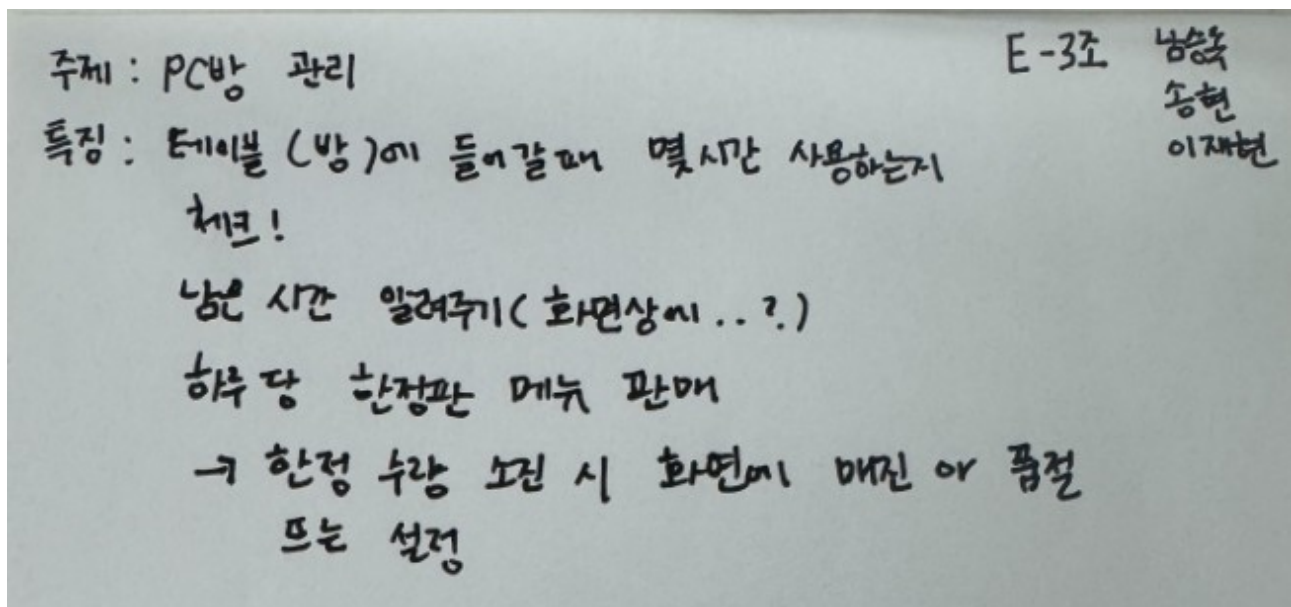 주제 : PC방 관리
E-3조 남승욱
송현
이재현
특징 : 테이블 (방)에 들어갈때 몇시간 사용하는지
체크!
남은 시간 알려주기 (화면상에..?)
하루 당 한정판 메뉴 판매
→ 한정 수량 소진 시 화면에 매진 or 품절
뜨는 설정